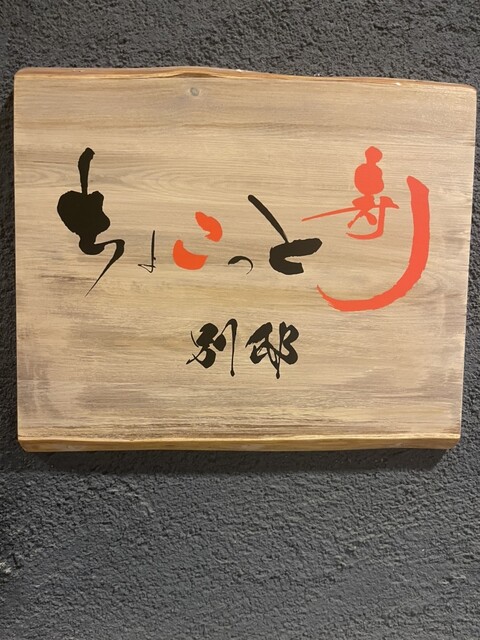 ちょこっと寿り
別邸